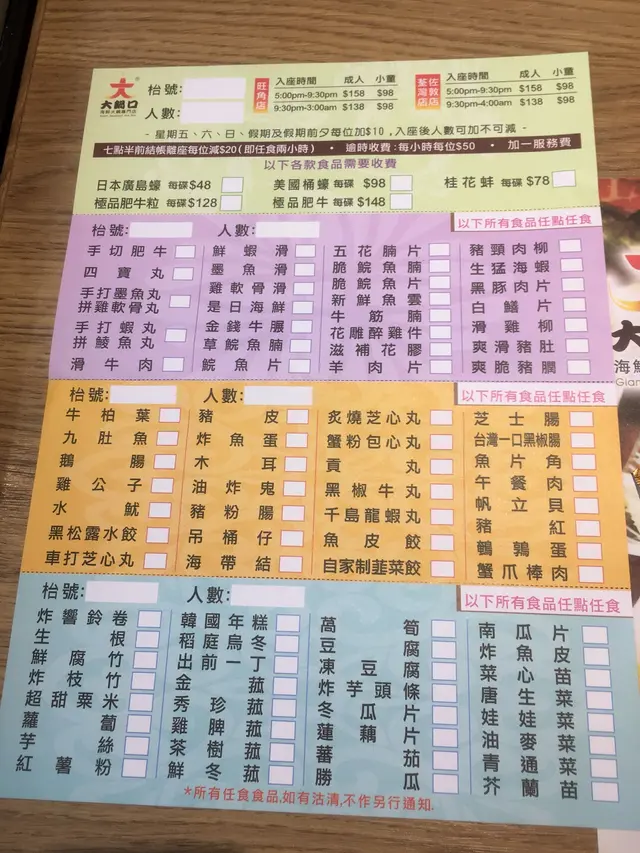 大鍋口
枱號:
人數:
旺角店
入座時間 成人 小童
5:00pm-9:30pm $158 $98
9:30pm-3:00am $138 $98
荃灣店 佐敦店
入座時間 成人 小童
5:00pm-9:30pm $158 $98
9:30pm-4:00am $138 $98
- 星期五、六、日、假期及假期前夕每位加$10,入座後人數可加不可減 -
七點半前結帳離座每位減$20(即任食兩小時) • 逾時收費:每小時每位$50 • 加一服務費
以下各款食品需要收費
日本廣島蠔 每碟$48 美國桶蠔 每碟 $98 桂花蚌 每碟$78
極品肥牛粒 每碟$128 極品肥牛 每碟$148
枱號: 人數: 以下所有食品任點任食
手切肥牛
四寶丸
手打墨魚丸
拼雞軟骨丸
手打蝦丸
拼鯪魚丸
滑牛肉
鮮蝦滑
墨魚滑
雞軟骨滑
是日海鮮
金錢牛𦟌
草鯇魚腩
鯇魚片
五花腩片
脆鯇魚腩
脆鯇魚片
新鮮魚雲
牛筋腩
花雕醉雞件
滋補花膠
羊肉片
豬頸肉柳
生猛海蝦
黑豚肉片
白鱔片
滑雞柳
爽滑豬肚
爽脆豬膶
枱號: 人數: 以下所有食品任點任食
牛柏葉
九肚魚
鵝腸
雞公子
水魷
黑松露水餃
車打芝心丸
豬皮
炸魚蛋
木耳
油炸鬼
豬粉腸
吊桶仔
海帶結
炙燒芝心丸
蟹粉包心丸
貢丸
黑椒牛丸
千島龍蝦丸
魚皮餃
自家制韮菜餃
芝士腸
台灣一口黑椒腸
魚片角
午餐肉
帆立貝
豬紅
鵪鶉蛋
蟹爪棒肉
枱號: 人數: 以下所有食品任點任食
炸響鈴卷
生根
鮮腐竹
炸枝竹
超甜粟米
蘿蔔
芋絲
紅薯粉
韓國年糕
稻庭烏冬
出前一丁
金菇
秀珍菇
雞脾菇
茶樹菇
鮮冬菇
萵筍
豆腐
凍豆腐
炸芋頭條
冬瓜片
蓮藕片
蕃茄
勝瓜
南瓜片
炸魚皮
菜心苗
唐生菜
娃娃菜
油麥菜
青通菜
芥蘭苗
*所有任食食品,如有沽清,不作另行通知.